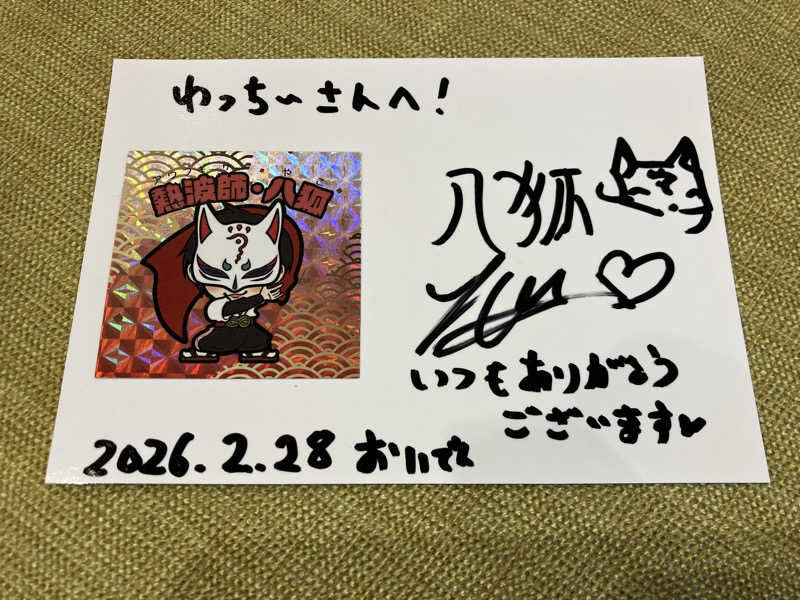 わっちーさんへ!
熱波師・八狐
八狐
いつもありがとう
ございます♥
2026.2.28 おいで